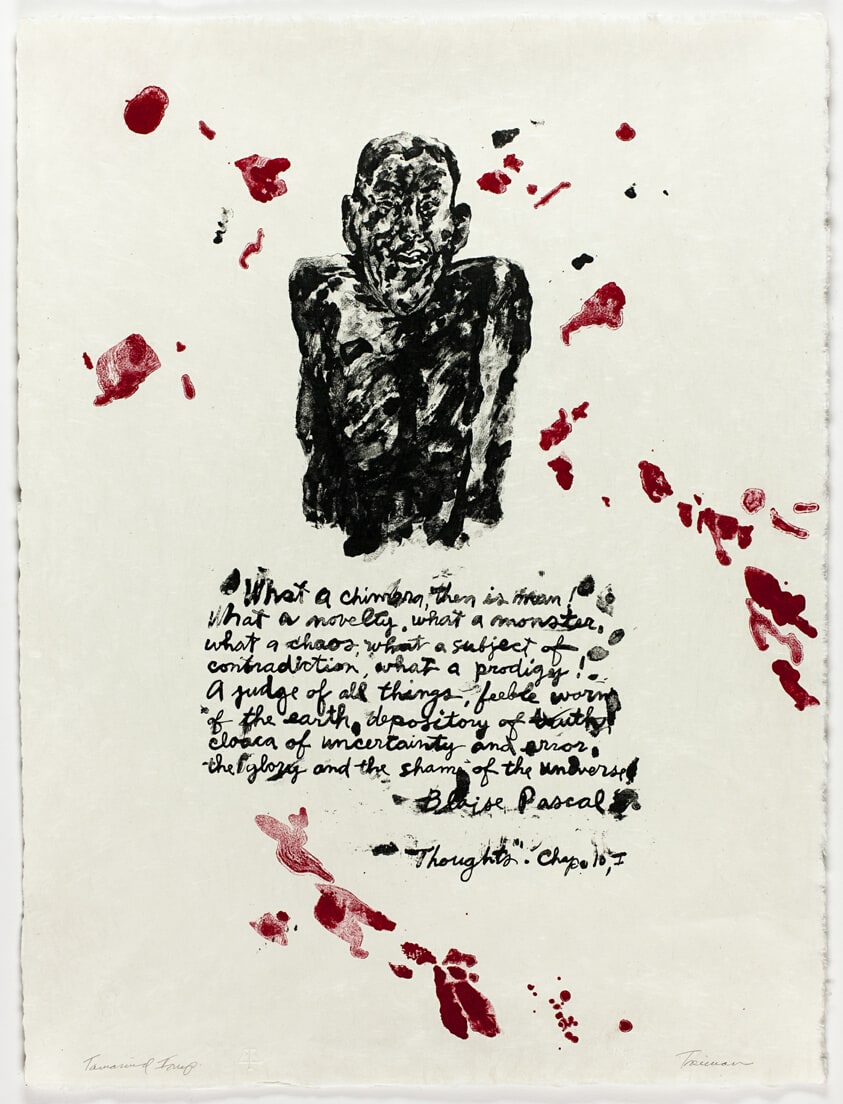 What a chimera, then is man!
What a novelty, what a monster,
what a chaos, what a subject of
contradiction, what a prodigy!
A judge of all things, feeble worm
of the earth, depository of truth,
cloaca of uncertainty and error,
the glory and the shame of the universe!
Blaise Pascal
"Thoughts". Chap. 10, I
Tamarind Imp